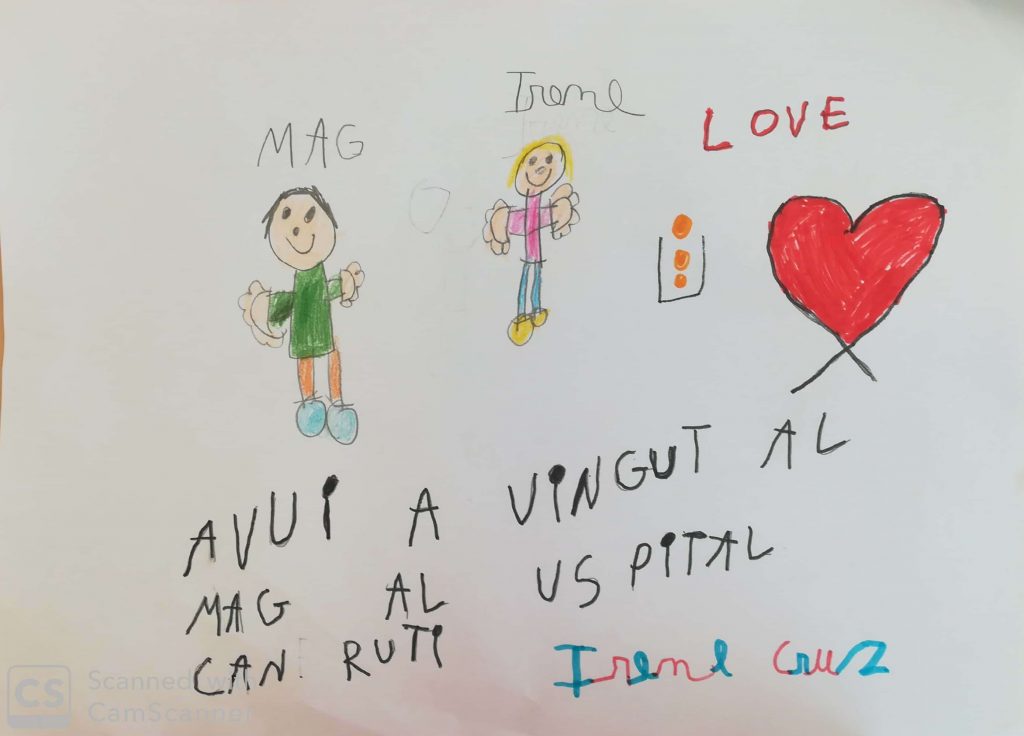 Irene
MAG
LOVE
AVUI A VINGUT AL
MAG AL USPITAL
CAN RUTI
Irene Cruz
CS Scanned with
CamScanner